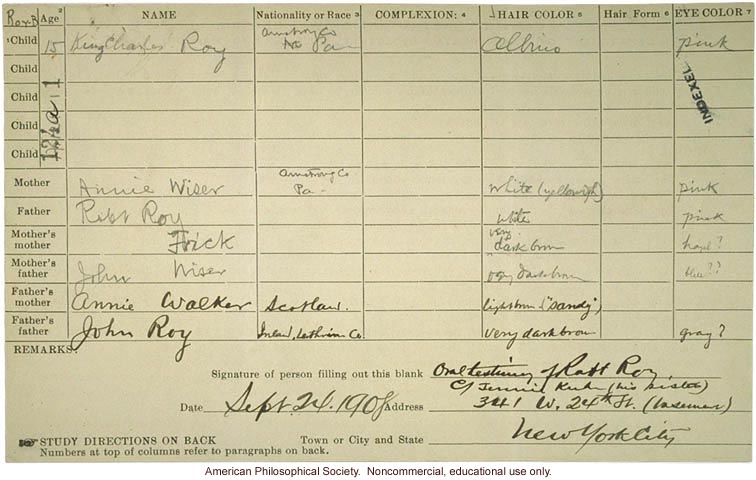 Roy-B Age 2 NAME Nationality or Race 3 COMPLEXION: 4 HAIR COLOR 5 Hair Form 6 EYE COLOR 7
1 Child 15 King Charles Roy Armstrong Co Pa Albino pink
Child
Child
Child
Child
INDEXED
Mother Annie Wiser Armstrong Co Pa- white (yellowish) pink
Father Robt Roy white pink
Mother's mother Frick very dark brown hazel?
Mother's father John Wiser very dark brown blue??
Father's mother Annie Walker Scotland. light brown ("sandy")
Father's father John Roy Co. very dark brown gray?
REMARKS:
Signature of person filling out this blank Oral testimony of Robt Roy
c/ Jennie Kuhn (his sister)
Date Sept 24. 1908 Address 341 W. 24th St. (basement)
STUDY DIRECTIONS ON BACK Town or City and State New York City
Numbers at top of columns refer to paragraphs on back.
American Philosophical Society. Noncommercial, educational use only.